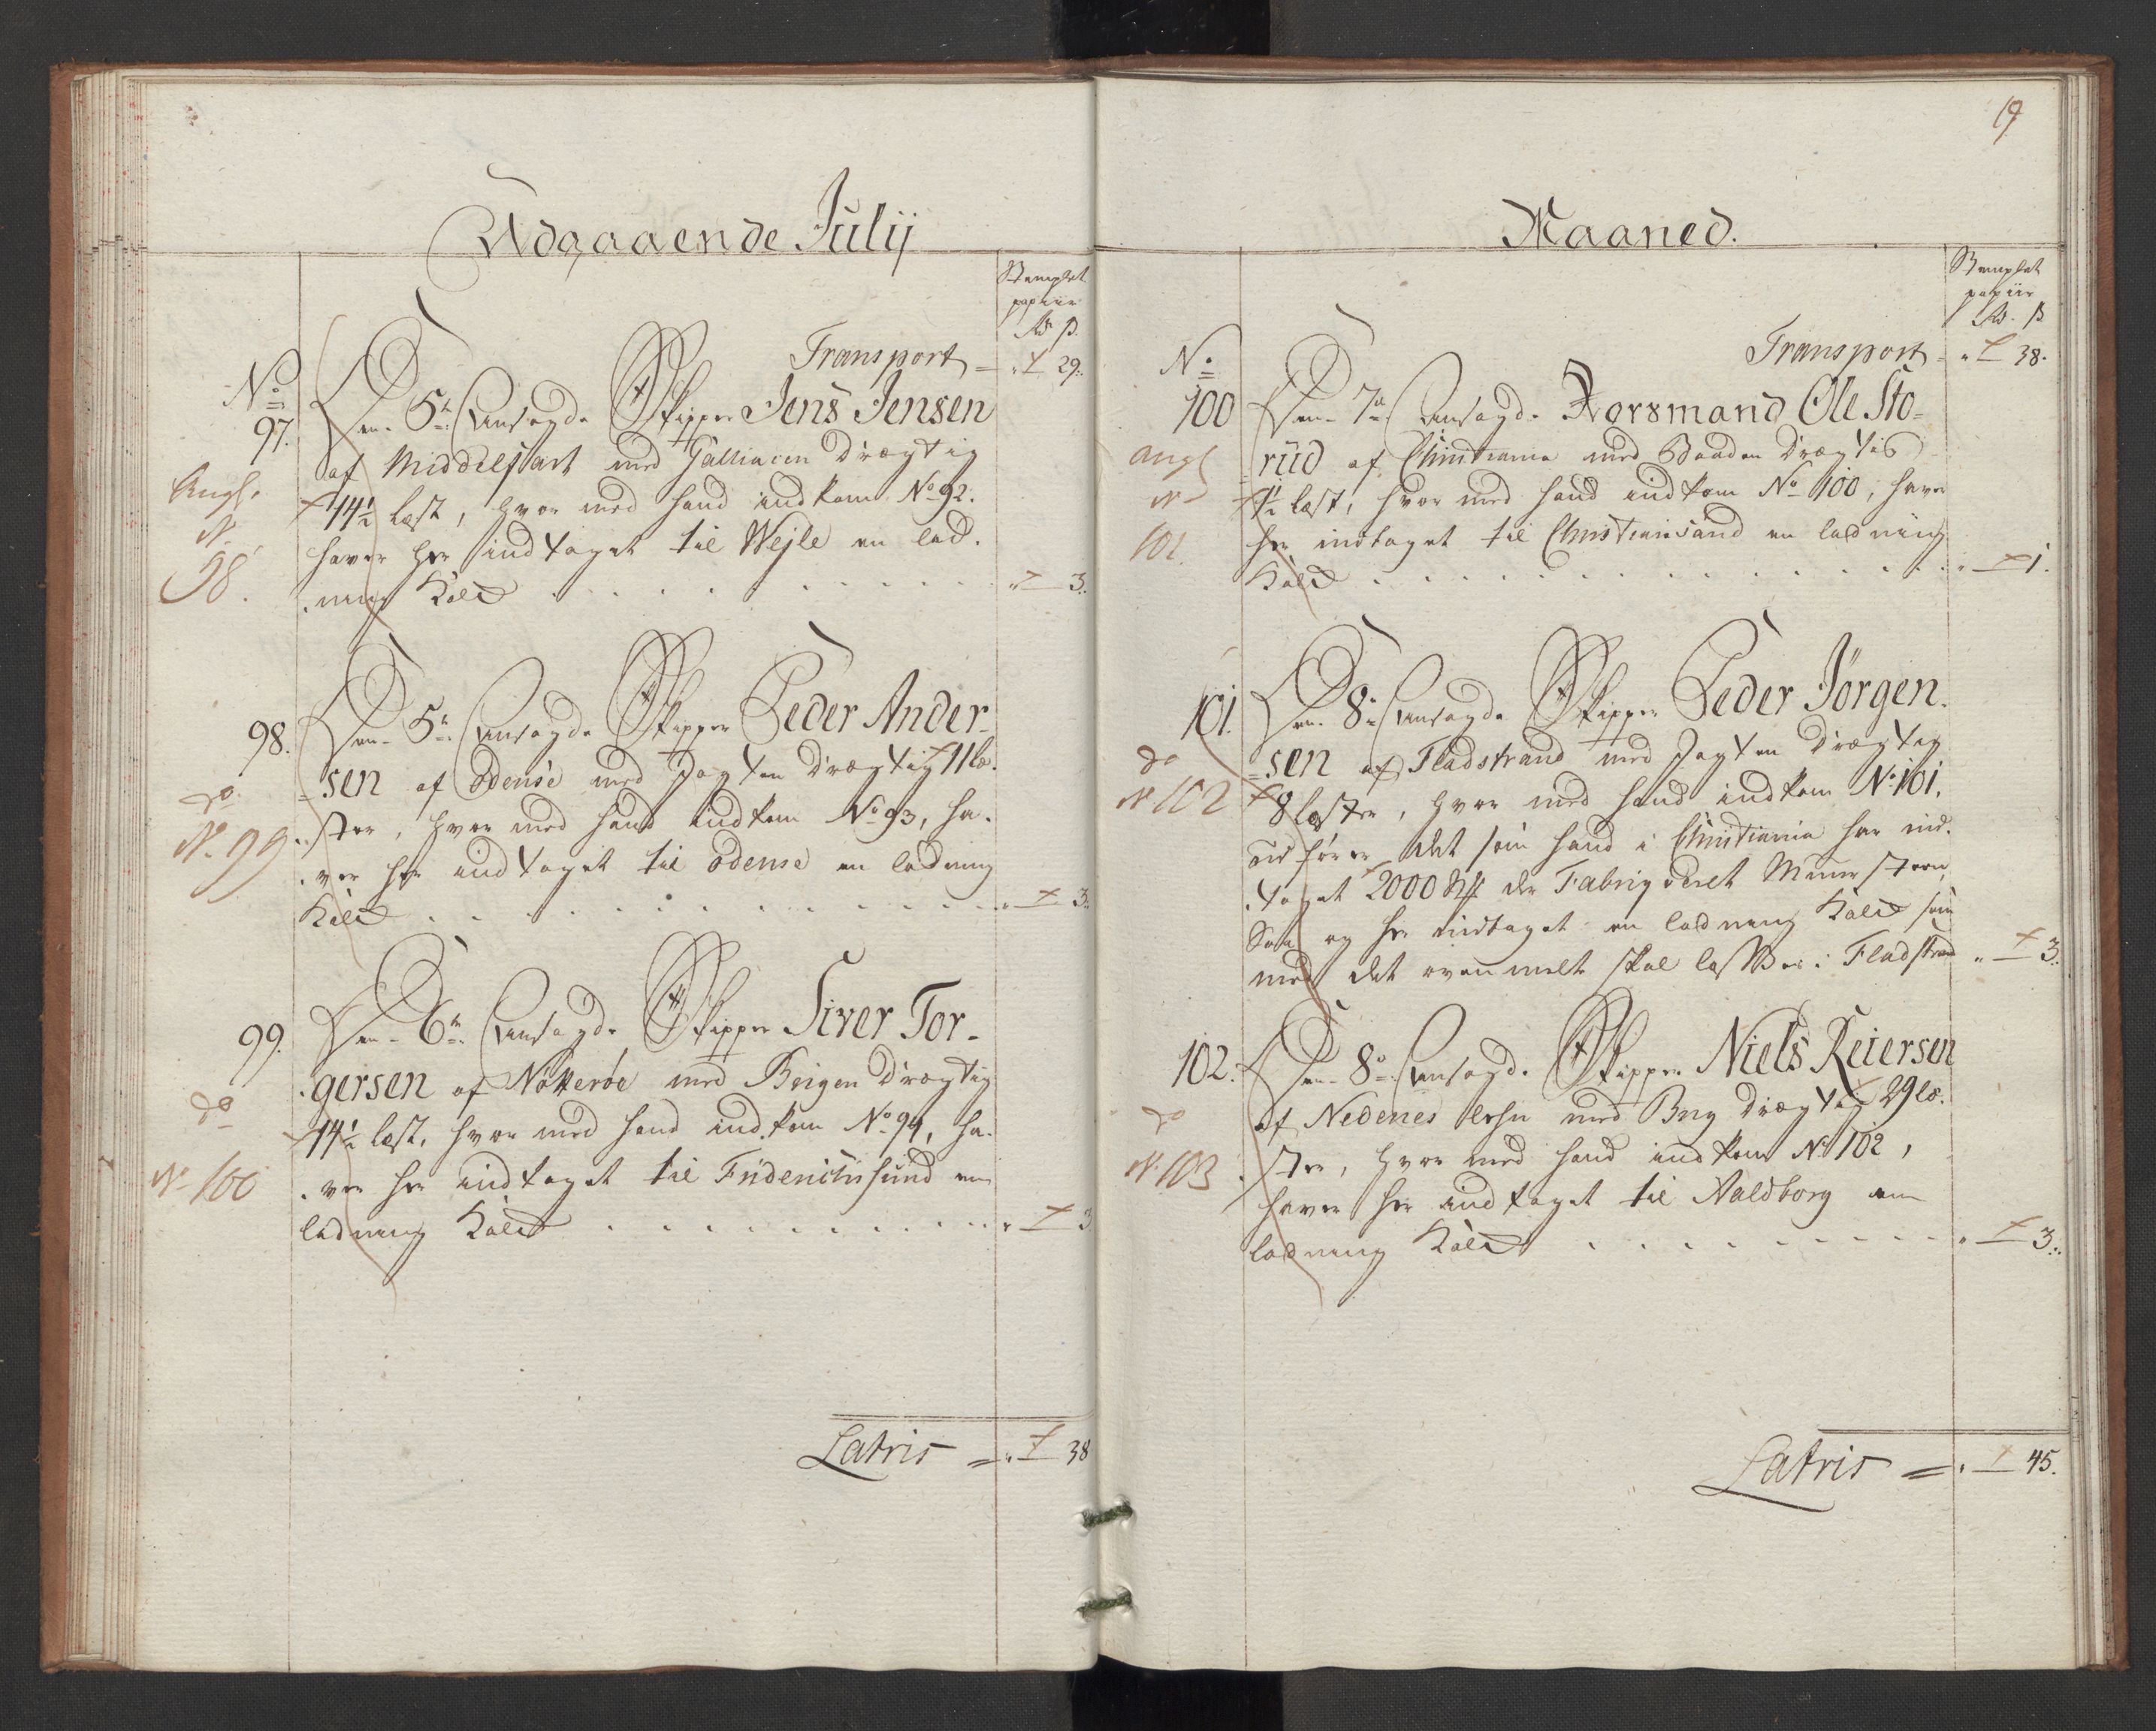 Udgaaende Julij
Stemplet
papiir
Rd. ß.
Transport = " 1 29.
No
97.
Den 5te Ansagde Skipper Jens Jensen
af Middelfart med Galliacen Drægtig
14½ læst, hvor med hand indkom No 92.
haver her indtaget til Wejle en lad-
ning Kald . . . . . . . . " 3.
Angl.
N.
98.
98.
Den 5te Ansagde Skipper Peder Ander-
sen af Odense med Jagten Drægtig 11 læ-
ster, hvor med hand indkom No 93, ha-
ver her indtaget til Odense en ladning
Kald . . . . . . . . " 3.
do
N. 99
99.
Den 6te Ansagde Skipper Siver Tor-
gersen af Nøtterøe med Brigen Drægtig
14½ læst, hvor med hand indkom No 94, ha-
ver her indtaget til Friderichssund en
ladning Kald . . . . . . . . " 3
do
N. 100
Latris = " 1 38
19
Maaned.
Stemplet
papiir
Rd. ß
Transport = " 1 38.
No
100
Den 7de Ansagde Norsmand Ole Sto-
rüd af Christiania med Baaden Drægtig
1½ læst, hvor med hand indkom No 100, haver
her indtaget til Christiansand en ladning
Kald . . . . . . . . " 1.
angl
N
101.
101.
Den 8de Ansagde Skipper Peder Jørgen-
sen af Fladstrand med Jagten Drægtig
8 læster, hvor med hand indkom No 101,
udfører det som hand i Christiania har ind-
taget 2000 Fabriqveret Muursteen,
Saa og her indtaget en ladning Kald som
med det ovenmelte skal losses i Fladstrand " 3.
do
N. 102
102.
Den 8de Ansagde Skipper Niels Reiersen
af Nedenes lehn med Brig Drægtig 29 læ-
ster, hvor med hand indkom No 102,
haver her indtaget til Aalborg en
ladning Kald . . . . . . . . " 3.
do
N. 103
Latris = " 1 45.